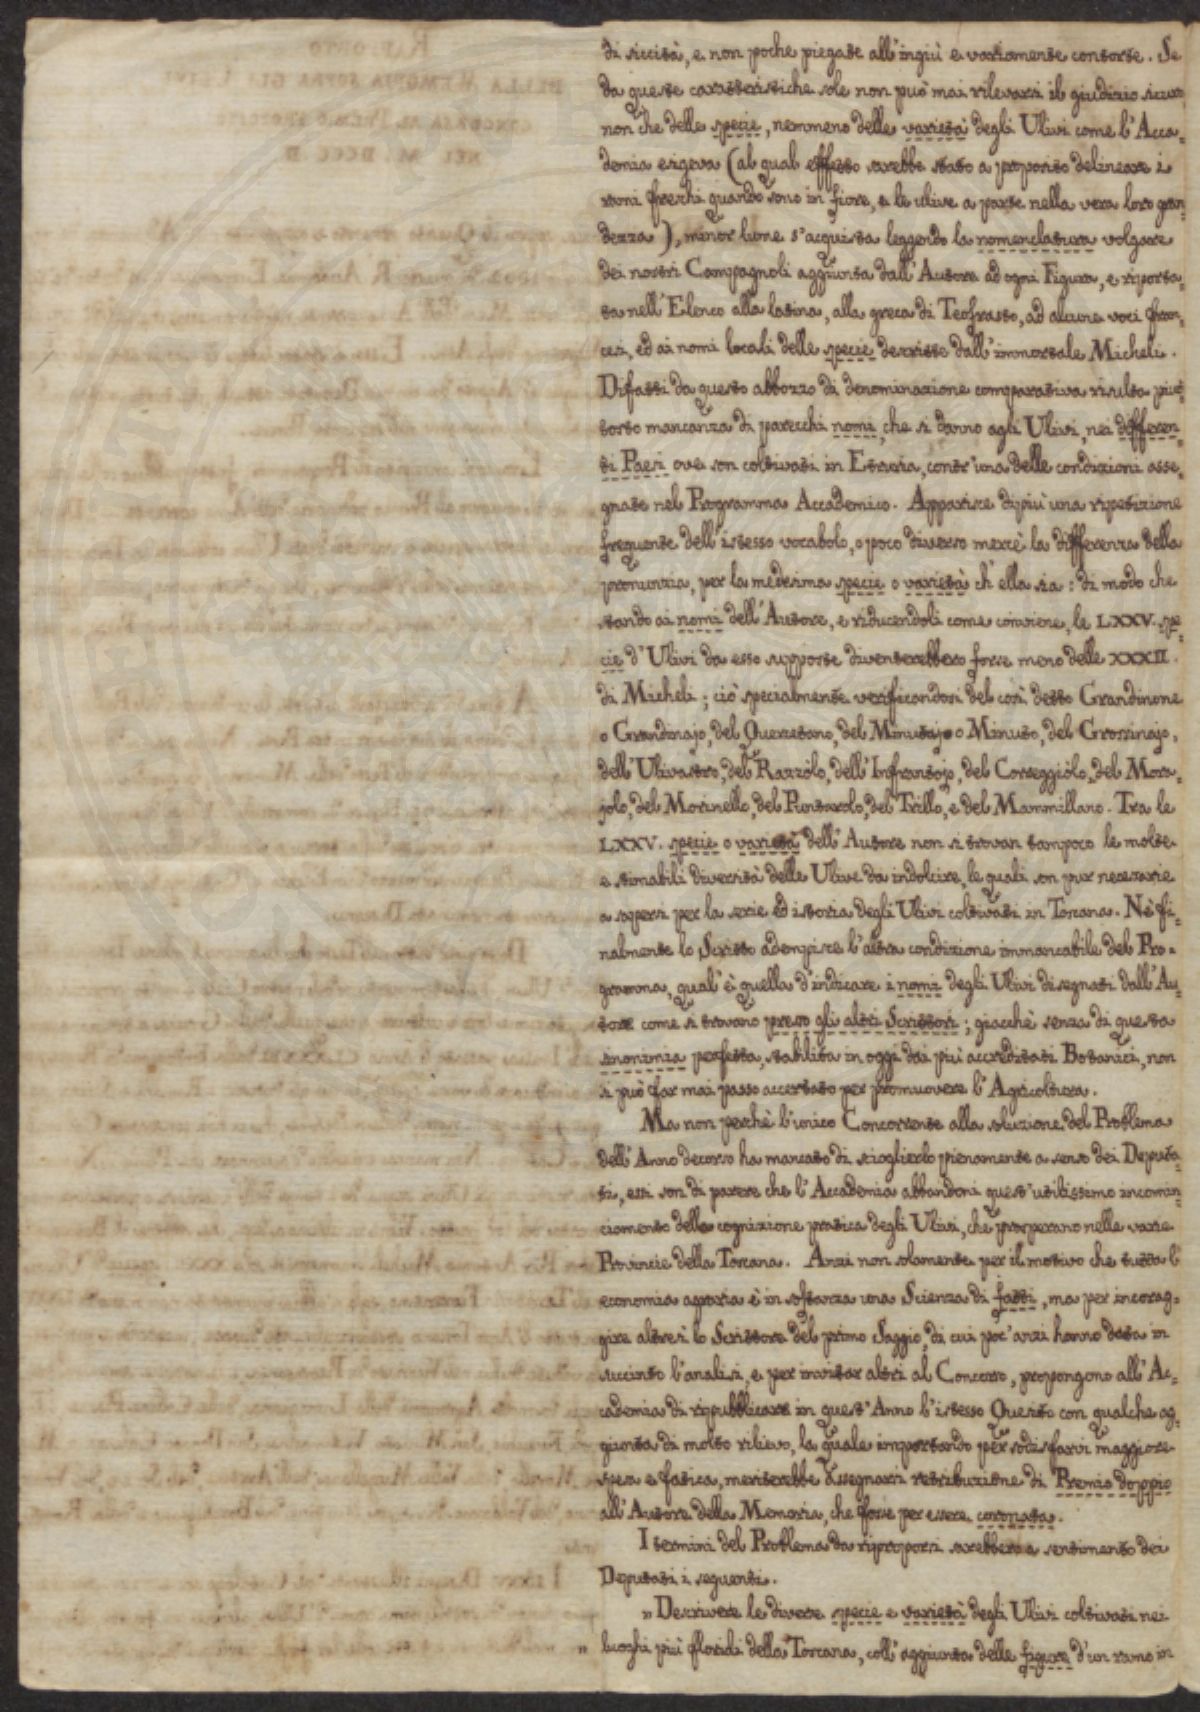 di siccità, e non poche piegate all'ingiù e variamente contorte. Se
da queste caratteristiche sole non può mai rilevarsi il giudizio sicuro
non che delle specie, nemmeno delle varietà degli Ulivi come l'Acca=
demia esigeva (al qual effetto sarebbe stato a proposito delineare i
rami freschi quando sono in fiore, e le ulive a parte nella vera loro gran=
dezza), minor lume s'acquista leggendo la nomenclatura volgare
dei nostri Campagnoli aggiunta dall'Autore ad ogni Figura, e riporta=
ta nell'Elenco alla latina, alla greca di Teofrasto, ad alcune voci fran=
cesi, ed ai nomi locali delle specie descritte dall'immortale Micheli.
Difatti da questo abbozzo di denominazione comparativa risulta piut=
tosto mancanza di parecchi nomi, che si danno agli Ulivi, nei differen=
ti Paesi ove son coltivati in Etruria, contr'una delle condizioni asse=
gnate nel Programma Accademico. Apparisce dipiù una ripetizione
frequente dell'istesso vocabolo, o poco diverso mercè la differenza della
pronunzia, per la medesima specie o varietà ch'ella sia: di modo che
stando ai nomi dell'Autore, e riducendoli come conviene, le LXXV. spe=
cie d'Ulivi da esso supposte diventerebbero forse meno delle XXXII.
di Micheli; ciò specialmente verificandosi del così detto Grandinone
o Grandinajo, del Quercetano, del Minutajo o Minuto, del Grossinajo,
dell'Ulivastro, del Razzòlo, dell'Infrantojo, del Correggiòlo, del Mora=
jolo, del Morinello, del Puntarolo, del Trillo, e del Mammillano. Tra le
LXXV. specie o varietà dell'Autore non si trovan tampoco le molte
e stimabili diversità delle Ulive da indolcire, le quali son pur necessarie
a sapersi per la serie ed istoria degli Ulivi coltivati in Toscana. Nè fi=
nalmente lo Scritto adempisce l'altra condizione immancabile del Pro=
gramma, qual'è quella d'indicare i nomi degli Ulivi disegnati dall'Au=
tore come si trovano presso gli altri Scrittori; giacchè senza di questa
sinonimia perfetta, stabilita in oggi dai più accreditati Botanici, non
si può far mai passo accertato per promuovere l'Agricoltura.
Ma non perchè l'unico Concorrente alla soluzione del Problema
dell'Anno decorso ha mancato di scioglierlo pienamente a senso dei Deputa=
ti, essi son di parere che l'Accademia abbandoni quest'utilissimo incomin=
ciamento della cognizione pratica degli Ulivi, che prosperano nelle varie
Provincie della Toscana. Anzi non solamente per il motivo che tutta l'
economia agraria è in sostanza una Scienza di fatti, ma per incorag=
gire altresì lo Scrittore del primo Saggio, di cui poc'anzi hanno data in
succinto l'analisi, e per invitar altri al Concorso, propongono all'Ac=
cademia di ripubblicare in quest'Anno l'istesso Quesito con qualche ag=
giunta di molto rilievo, la quale importando per sodisfarvi maggiore
spesa e fatica, meriterebbe assegnarsi retribuzione di Premio doppio
all'Autore della Memoria, che fosse per essere coronata.
I termini del Problema da riproporsi sarebbero a sentimento dei
Deputati i seguenti.
„ Descrivere le diverse specie e varietà degli Ulivi coltivati nei
„ luoghi più floridi della Toscana, coll'aggiunta delle figure d'un ramo in